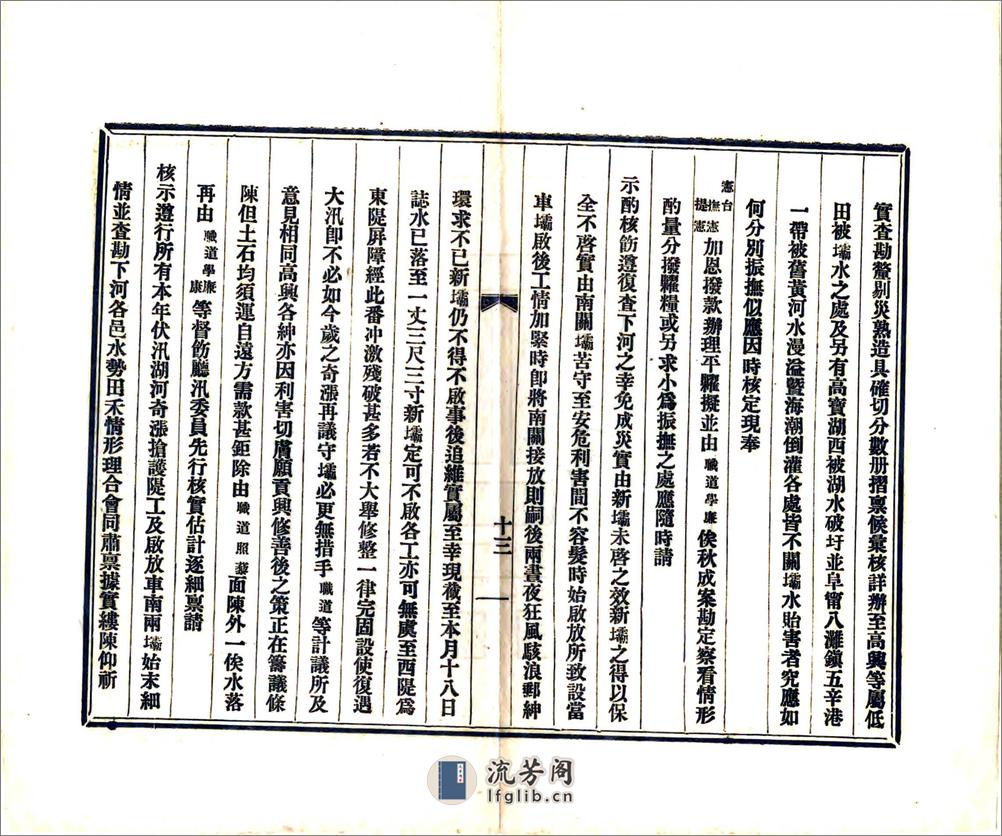 實查勘釐剔災熟造具確切分數册摺稟候彙核詳辦至高興等屬低
田被壩水之處及另有高寶湖西被湖水破圩並阜甯八灘鎮五辛港
一帶被舊黃河水漫溢暨海潮倒灌各處皆不關壩水貽害者究應如
何分別振撫似應因時核定現奉
憲台撫憲提憲加恩撥款辦理平糶擬並由職道學廉俟秋成案勘定察看情形
酌量分撥糶糧或另求小爲振撫之處應隨時請
示酌核飭遵復查下河之幸免成災實由新壩未啓之效新壩之得以保
全不啓實由南關壩苦守至安危利害間不容髮時始啟放所致設當
車壩啟後工情加緊時卽將南關接放則嗣後兩晝夜狂風駭浪郵紳
十三
環求不已新壩仍不得不啟事後追維實屬至幸現截至本月十八日
誌水已落至一丈三尺三寸新壩定可不啟各工亦可無虞至西隄爲
東隄屏障經此番冲激殘破甚多者不大舉修整一律完固設使復遇
大汛卽不必如今歲之奇漲再議守壩必更無措手職道等計議所及
意見相同高興各紳亦因利害切膚願貢興修善後之策正在籌議條
陳但土石均須運自遠方需款甚鉅除由職道照藜面陳外一俟水落
再由職道學廉廉等督飭廳汛委員先行核實估計逐細稟請
核示遵行所有本年伏汛湖河奇漲搶護隄工及啟放車南兩壩始末細
情並查勘下河各邑水勢田禾情形理合會同肅稟據實縷陳仰祈
流芳阁
lfglib.cn